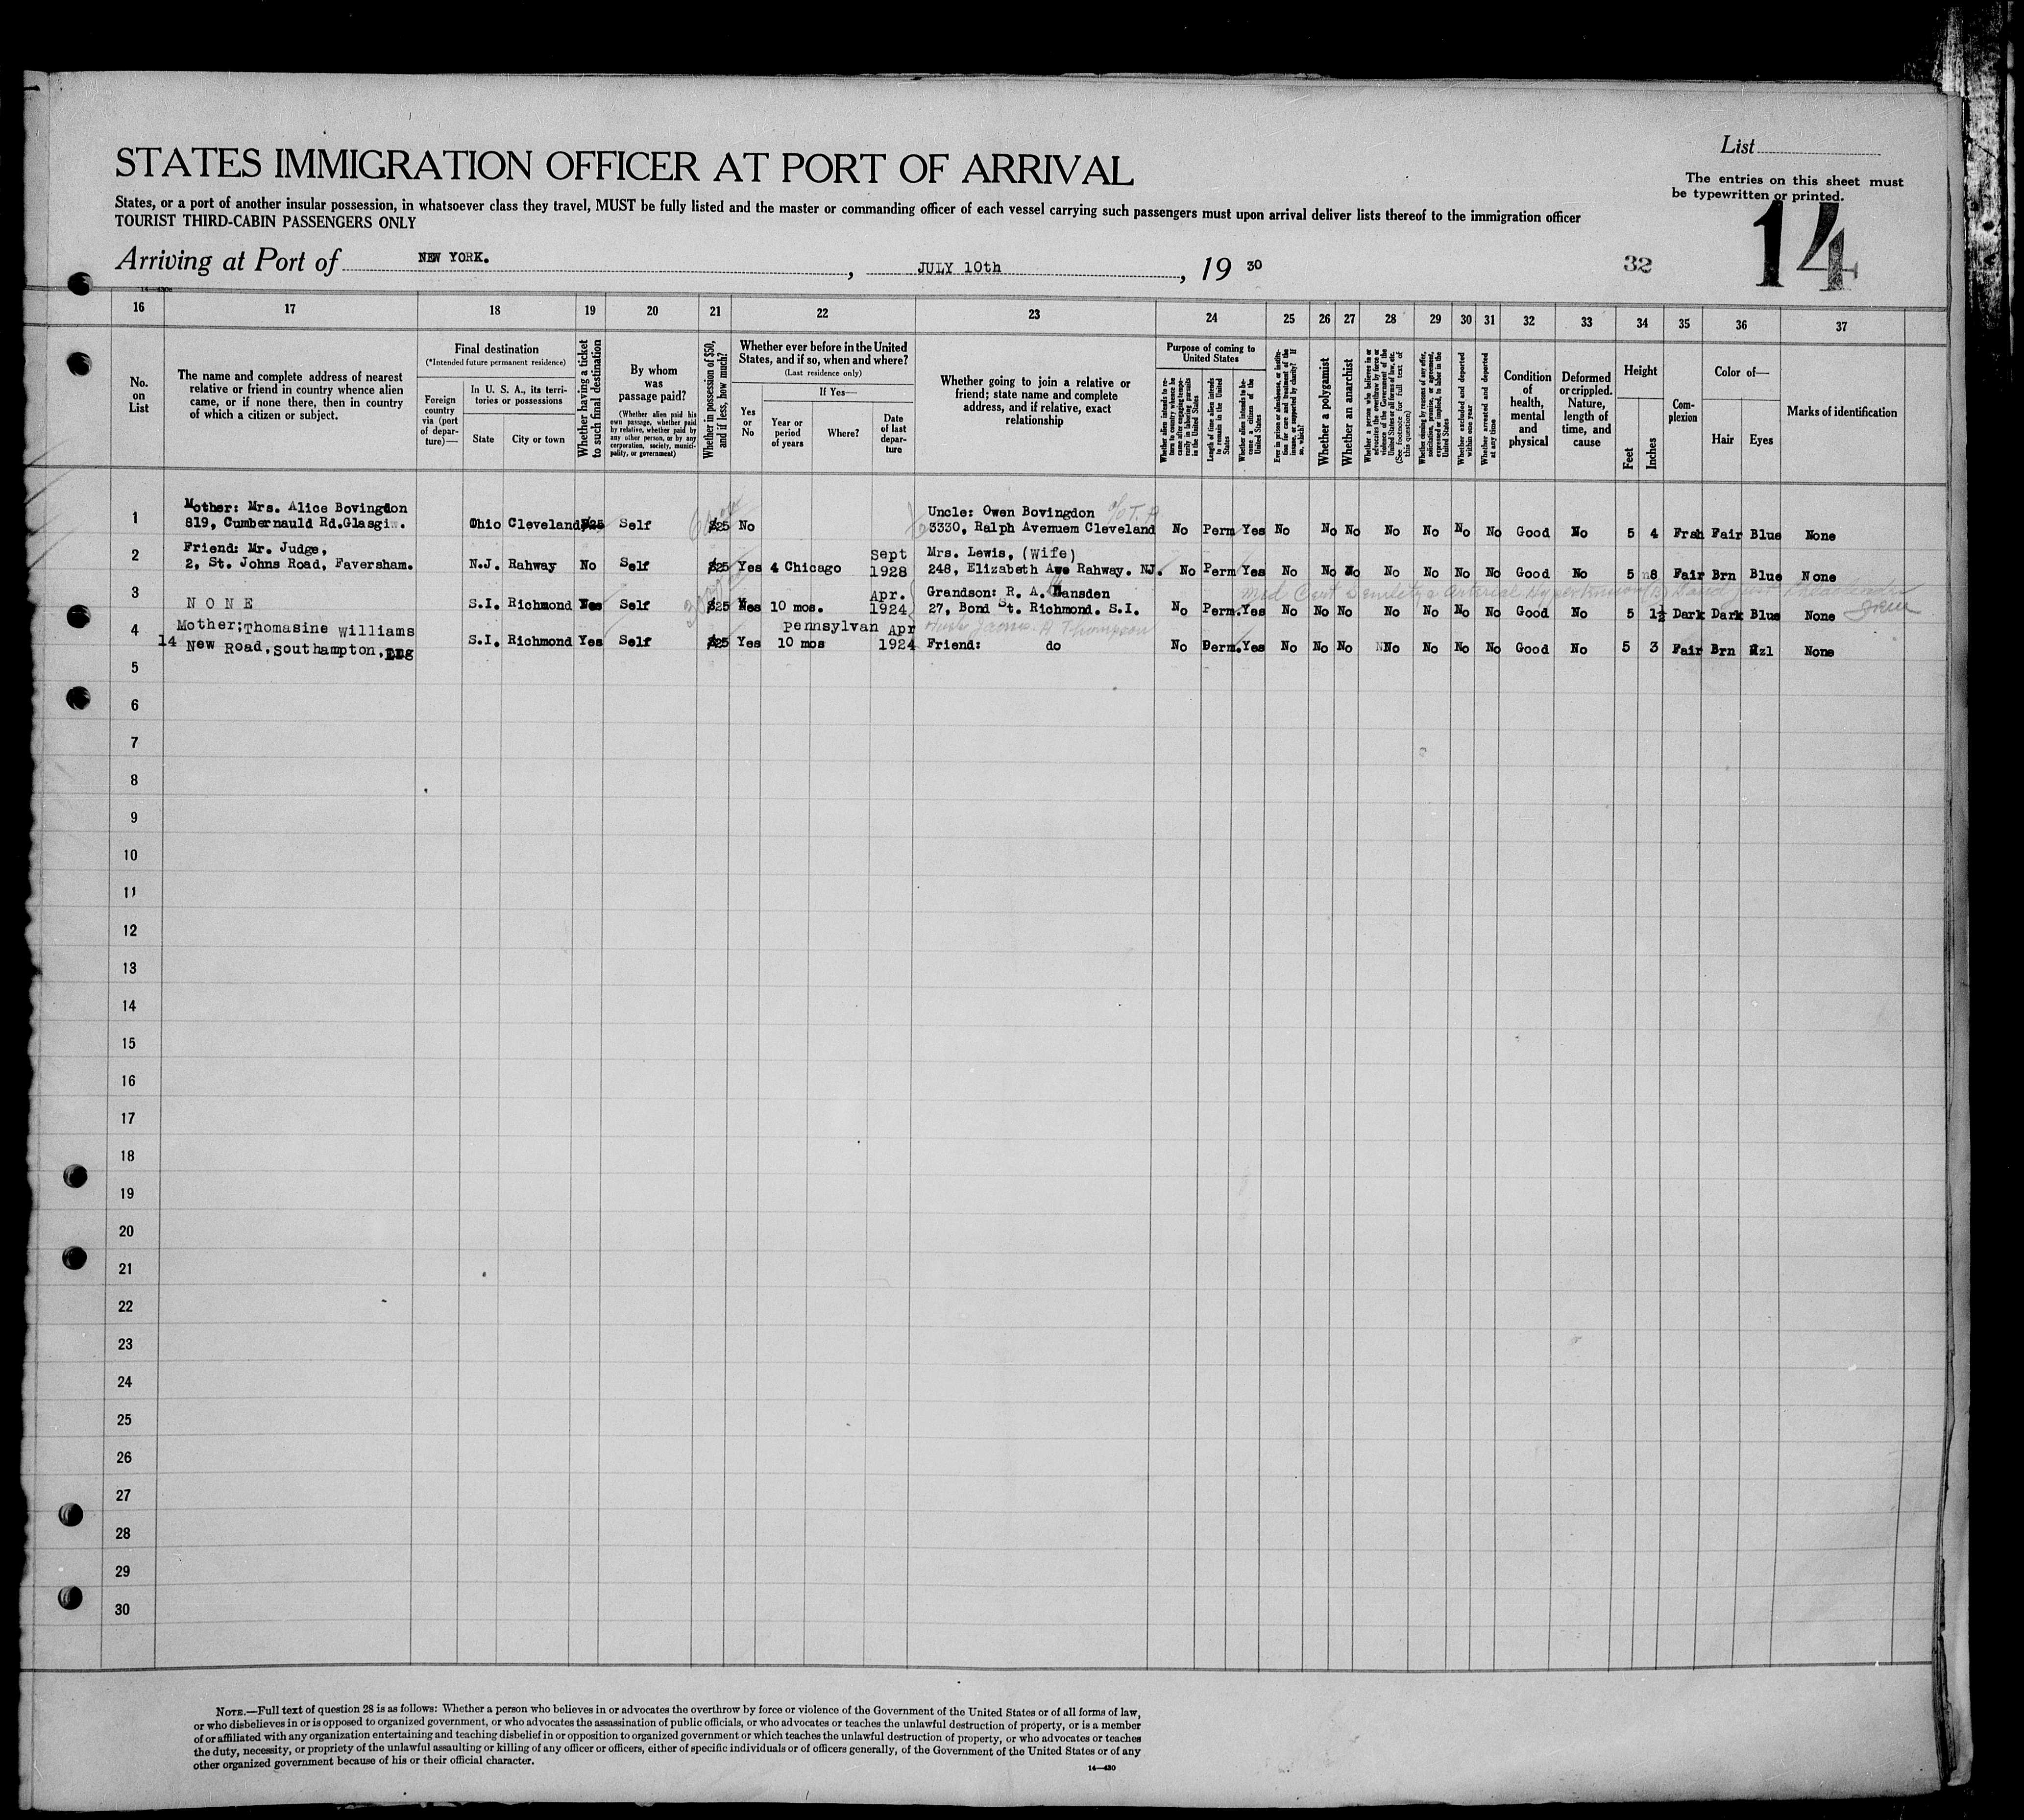 List
STATES IMMIGRATION OFFICER AT PORT OF ARRIVAL
The entries on this sheet must
be typewritten or printed.
States, or a port of another insular possession, in whatsoever class they travel, MUST be fully listed and the master or commanding officer of each vessel carrying such passengers must upon arrival deliver lists thereof to the immigration officer
TOURIST THIRD-CABIN PASSENGERS ONLY
14
Arriving at Port of NEW YORK. , JULY 10th , 19 30
32
16 17 18 19 20 21 22 23 24 25 26 27 28 29 30 31 32 33 34 35 36 37
No. on List
The name and complete address of nearest relative or friend in country whence alien came, or if none there, then in country of which a citizen or subject.
Final destination
(*Intended future permanent residence)
Foreign country via (port of departure)—
In U. S. A., its territories or possessions
State
City or town
Whether having a ticket to such final destination
By whom was passage paid?
(Whether alien paid his own passage, whether paid by relative, whether paid by any other person, or by any corporation, society, municipality, or government)
Whether in possession of $50, and if less, how much?
Whether ever before in the United States, and if so, when and where?
(Last residence only)
Yes or No
If Yes—
Year or period of years
Where?
Date of last departure
Whether going to join a relative or friend; state name and complete address, and if relative, exact relationship
Purpose of coming to United States
Whether alien intends to return to country whence he came after engaging temporarily in laboring pursuits in the United States
Length of time alien intends to remain in the United States
Whether alien intends to become a citizen of the United States
Ever in prison or almshouse, or institution for care and treatment of the insane, or supported by charity? If so, which?
Whether a polygamist
Whether an anarchist
Whether a person who believes in or advocates the overthrow by force or violence of the Government of the United States or all forms of law, etc. (See footnote for full text of this question)
Whether coming by reasons of any offer, solicitation, promise, or agreement, expressed or implied, to labor in the United States
Whether excluded and deported within one year
Whether arrested and deported at any time
Condition of health, mental and physical
Deformed or crippled. Nature, length of time, and cause
Height
Feet
Inches
Complexion
Color of—
Hair
Eyes
Marks of identification
Mother: Mrs. Alice Bovingdon Uncle: Owen Bovingdon
1 819, Cumbernauld Rd.Glasgi. Ohio Cleveland $25 Self $25 No 3330, Ralph Avenuem Cleveland No Perm Yes No No No No No No No Good No 5 4 Frsh Fair Blue None
Friend: Mr. Judge, Sept Mrs. Lewis, (Wife)
2 2, St. Johns Road, Faversham. N.J. Rahway No Self $25 Yes 4 Chicago 1928 248, Elizabeth Ave Rahway. NJ. No Perm Yes No No No No No No No Good No 5 8 Fair Brn Blue None
Apr. Grandson: R. A. Hansden
3 NONE S.I. Richmond Yes Self $25 Yes 10 mos. 1924 27, Bond St. Richmond. S.I. No Perm. Yes No No No No No No No Good No 5 1½ Dark Dark Blue None
Med Cert Senility & Arterial Hypertension
Mother;Thomasine Williams Pennsylvan Apr
James A Thompson
4 14 New Road, Southampton, Eng S.I. Richmond Yes Self $25 Yes 10 mos 1924 Friend: do No Perm. Yes No No No No No No No Good No 5 3 Fair Brn Hzl None
5
6
7
8
9
10
11
12
13
14
15
16
17
18
19
20
21
22
23
24
25
26
27
28
29
30
NOTE.—Full text of question 28 is as follows: Whether a person who believes in or advocates the overthrow by force or violence of the Government of the United States or of all forms of law,
or who disbelieves in or is opposed to organized government, or who advocates the assassination of public officials, or who advocates or teaches the unlawful destruction of property, or is a member
of or affiliated with any organization entertaining and teaching disbelief in or opposition to organized government or which teaches the unlawful destruction of property, or who advocates or teaches
the duty, necessity, or propriety of the unlawful assaulting or killing of any officer or officers, either of specific individuals or of officers generally, of the Government of the United States or of any
other organized government because of his or their official character.
14—430